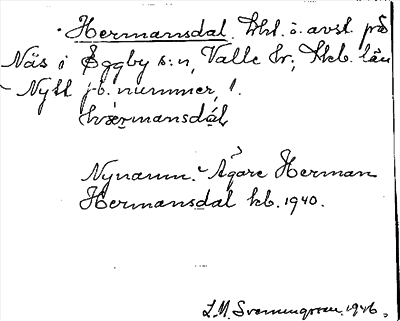 Hermansdal, lht. o. avst. på
Näs i Eggby s:n, Valle hd, Skb. län
Nytt jb. nummer, 1.
hærmansdál
Nynamn. Ägare Herman
Hermansdal kb. 1940.
L.M. Svenungsson. 1946.